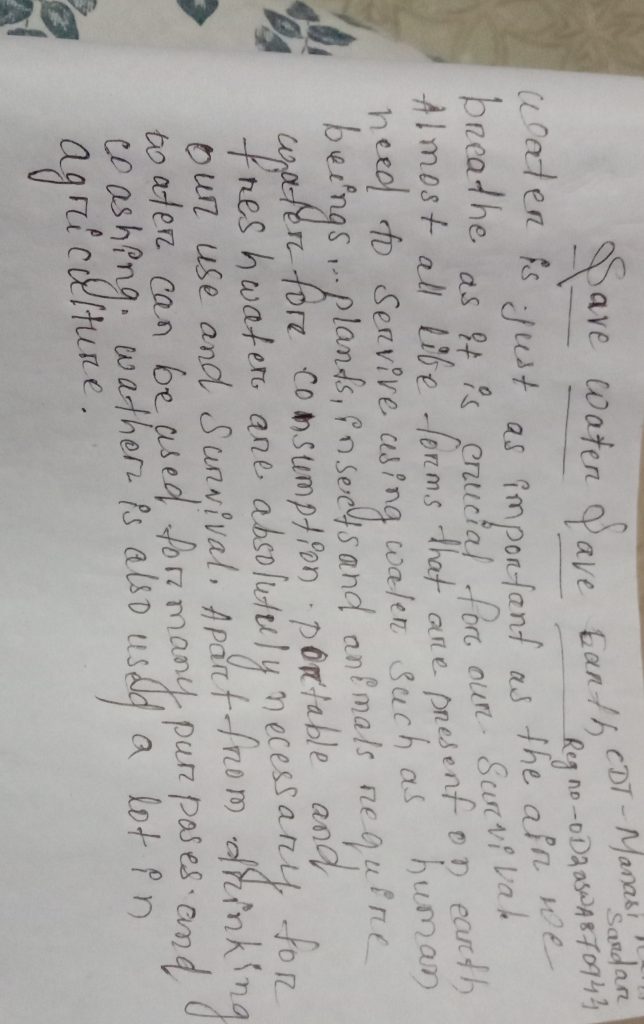 CDT - Manas
Sardar
Save water Save Earth
water is just as important as the air we
breathe as it is crucial for our survival.
Almost all life forms that are present on earth
need to servive using water such as human
beings, plants, insects and animals require
water for consumption. portable and
freshwater are absolutuly necessary for
our use and survival. Apart from drinking
water can be used for many purposes. and
washing. wather is also used a lot in
agriculture.